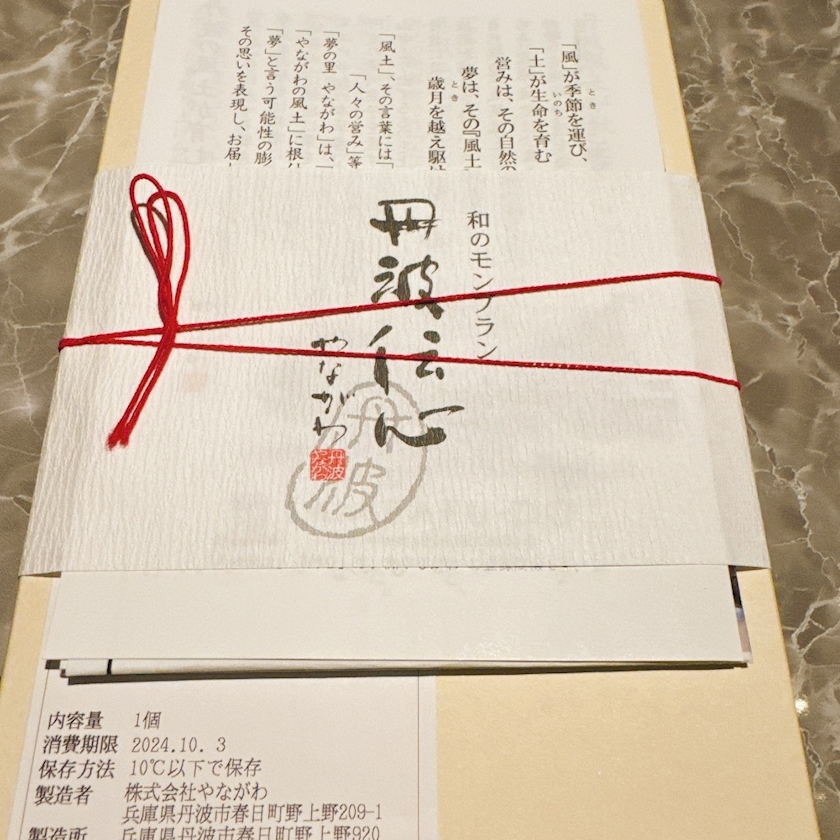 「風」が季節を運び、
とき
「土」が生命を育む
いのち
営みは、その自然の
夢は、その『風土
歳月を越え駆け
とき
「風土」、その言葉には「
「人々の営み」等
「夢の里 やながわ」は、
「やながわの風土」に根
「夢」と言う可能性の膨
その思いを表現し、お届
和のモンブラン
丹波伝心
やながわ
丹波
やながわ
丹波
内容量 1個
消費期限 2024.10. 3
保存方法 10℃以下で保存
製造者 株式会社やながわ
兵庫県丹波市春日町野上野209-1
製造所 兵庫県丹波市春日町野上野920